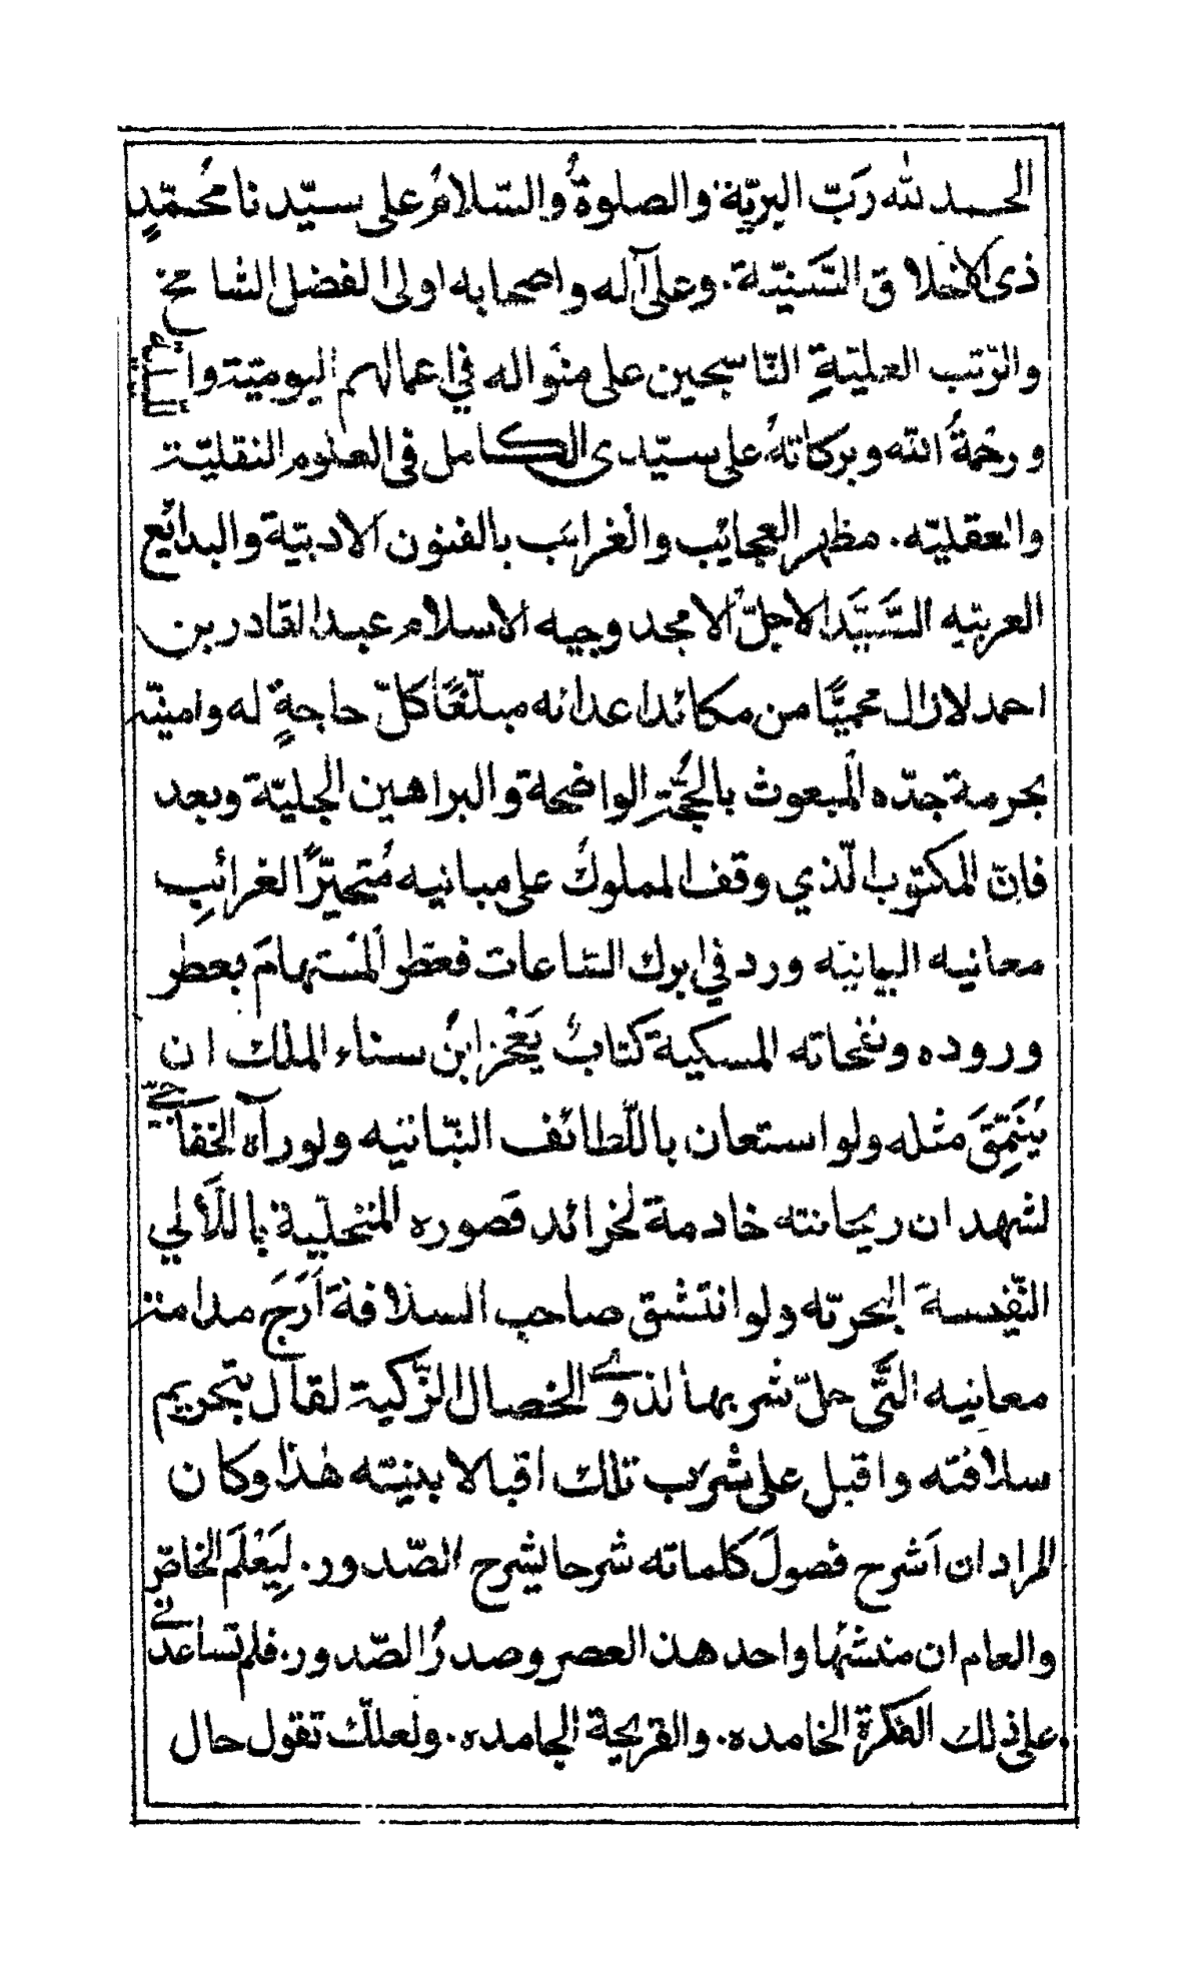 الحمد لله رَبّ البريّة والصلوةُ والسّلامُ على سيّدنا مُحمّدٍ
ذى الاخلاق السَّنيّة. وعلى آله واصحابه اولى الفضل الشامخ
والرّتب العليّةِ النّاسجين على منواله في اعمالهم اليوميّة والليليّة
ورحمةُ الله وبركاتهُ على سيّدى الكامل فى العلوم النقليّة
والعقليّه. مظهر العجائب والغرائب بالفنون الادبيّة والبدائع
العربيّه السَّيَّد الاجلّ الامجد وجيه الاسلام عبد القادر بن
احمد لازال محميًّا من مكائد اعدائه مبلّغًا كلّ حاجةٍ له وامنيّة
بحرمة جدّه المبعوث بالحُجّة الواضحة والبراهين الجليّة وبعد
فانّ المكتوب الّذي وقف المملوكُ على مبانيه مُتحيّرًا لغرائبِ
معانيه البيانيّه ورد في ابرك السّاعات فعطّر المُستهامَ بعطر
وروده ونفحاته المسكية كتابٌ يَعْجز ابنُ سناء الملك ان
يُنَمِّقَ مثله ولو استعان باللّطائف النّباتيه ولو رآه الخفاجيّ
لشهد ان ريحانته خادمة لخرائد قصوره المتحلّية باللّآلي
النّفيسة البحريّه ولو انتشق صاحب السلافة اَرَجَ مدامة
معانيه الَّتى حلّ شربها لذوي الخصال الزّكية لقال بتحريم
سلافته واقبل على شُرب تلك اقبالا بنيّته هٰذا وكان
المراد ان اَشرح فصولَ كلماته شرحا يشرح الصّدور. لِيَعْلَم الخاصّ
والعام ان منشئها واحد هذ العصر وصدرُ الصّدور. فلم تساعدني
على ذلك الفكرة الخامده. والقريحة الجامده. ولعلّك تقول حال